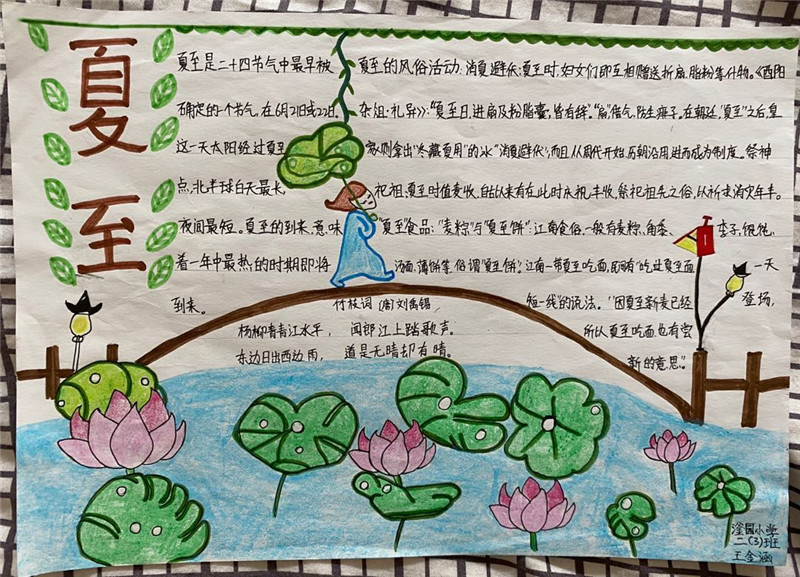 夏至
夏至是二十四节气中最早被
确定的一个节气。在6月21日或22日,
这一天太阳经过夏至
点,北半球白天最长,
夜间最短。夏至的到来,意味
着一年中最热的时期即将
到来。
夏至的风俗活动:消夏避伏:夏至时,妇女们即互相赠送折扇、脂粉等什物。《酉阳
杂俎·礼异》:“夏至日,进扇及粉脂囊,皆有辞。”“扇”借气,防生痱子。在朝廷,“夏至”之后,皇
家则拿出“冬藏夏用”的冰“消夏避伏”,而且从周代开始,历朝沿用进而成为制度。祭神
祀祖:夏至时值麦收,自古以来有在此时庆祝丰收、祭祀祖先之俗,以祈求消灾年丰。
“夏至”食品:“麦粽”与“夏至饼”:江南食俗,一般有麦粽、角黍、李子、馄饨、
汤面、蒲饼等,俗谓“夏至饼”。江南一带夏至吃面,有“吃过夏至面 一天
短一线”的说法。“因夏至新麦已经 登场,
所以夏至吃面也有尝
新的意思。”
竹枝词 (唐)刘禹锡
杨柳青青江水平, 闻郎江上踏歌声。
东边日出西边雨, 道是无晴却有晴。
小学
二(3)班